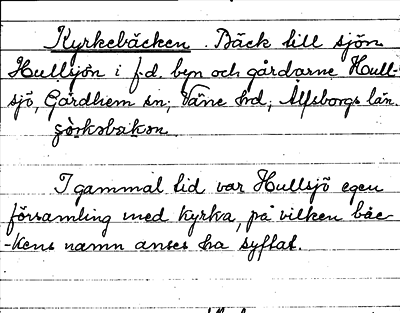 Kyrkebäcken. Bäck till sjön
Hullsjön i f.d. byn och gårdarne Hull-
sjö, Gärdhem sn; Väne hd; Älfsborgs län.
I gammal tid var Hullsjö egen
församling med kyrka, på vilken bäc-
-kens namn anses ha syftat.